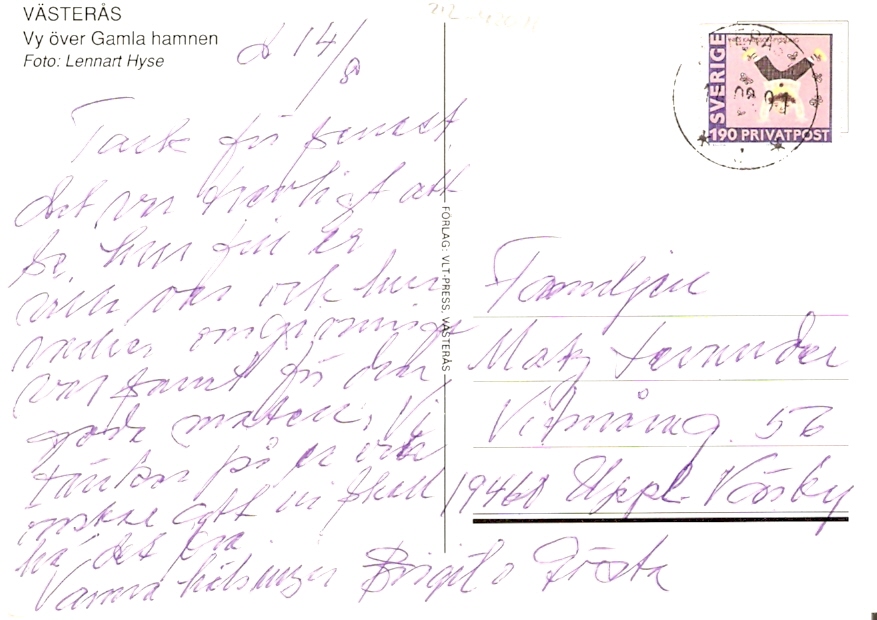 VÄSTERÅS
Vy över Gamla hamnen
Foto: Lennart Hyse
d 14/8
Tack för senast
det var trevligt att
se hur fin er
och hur
vacker omgivning
var samt för den
goda maten. Vi
tänker på er och
önskar att ni skall
ha det bra
Varma hälsningar Birgit o Gösta
FÖRLAG: VLT-PRESS, VÄSTERÅS
SVERIGE
190 PRIVATPOST
Familjen
Mats
56
19460 Uppl. Väsby